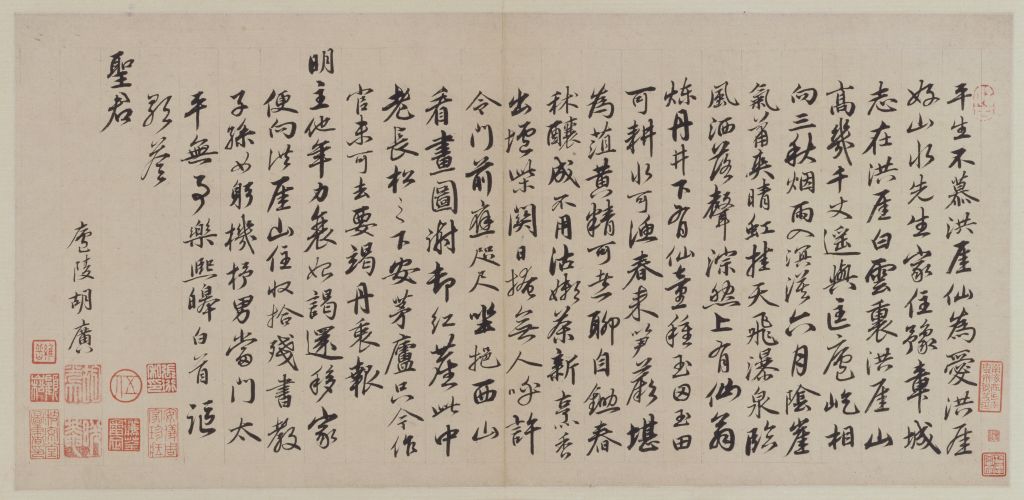 平生不慕洪厓仙為愛洪厓
好山水先生家住豫章城
志在洪厓白雲裏洪厓山
高幾千丈遥與匡廬屹相
向三秋烟雨入溟濛六月陰崖
氣蕭爽晴虹挂天飛瀑泉臨
風洒落聲淙然上有仙翁
煉丹井下有仙童種玉田玉田
可耕水可漁春来笋蕨堪
為葅黄精可煮聊自鋤春
秫釀成不用沽嫩茶新烹香
出壚柴関日掩無人呼許
令門前應咫尺坐挹西山
看畫圖謝却紅塵此中
老長松之下安茅廬只今作
官未可去要竭丹衷報
明主他年力衰始謁還移家
便向洪厓山住収拾殘書教
子孫女躬機杼男當門太
平無事樂熙皞白首謳
歌答
聖君
廬陵胡廣